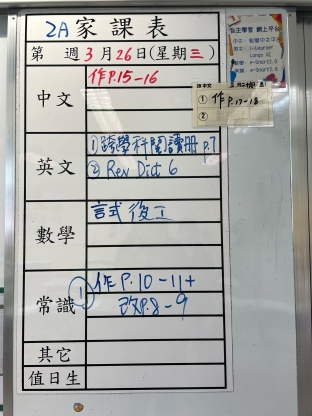 2A 家課表
第 週3月26日(星期三)
中文 作P.15-16
① 作P.17-18
②
英文 ①跨學科閱讀冊 p.7
② Rev Dict 6
數學
常識 ① 作P.10-11+
改P.8-9
其它
值日生
自主學習 網上平台